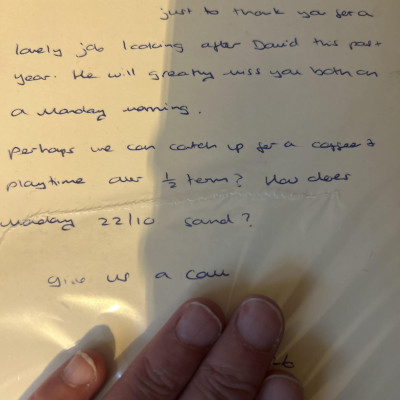 just to thank you for a
lovely job looking after David this past
year. He will greatly miss you both on
a Monday morning.
Perhaps we can catch up for a coffee &
playtime over ½ term? How does
Monday 22/10 sound?
Give us a call